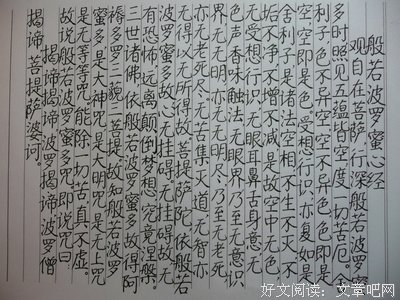 般若波罗蜜心经
观自在菩萨,行深般若波罗蜜
多时照见五蕴皆空,度一切苦厄。舍
利子色不异空空不异色,色即是
空空即是色,受想行识亦复如是
舍利子是诸法空相不生不灭不
垢不净不增不减是故空中无色,
无受想行识,无眼耳鼻舌身意无
色声香味触法,无眼界乃至无意识
界无无明亦无无明尽乃至无老死
亦无老死尽无古集灭道无智亦
无得以无所得故菩提萨陀依般若
波罗蜜多故心无挂碍无挂碍故无
有恐怖远离颠倒梦想究竟涅槃。
三世诸佛依般若波罗蜜多故得阿
褥多罗三藐三菩提故知般若波罗
蜜多是大神咒是大明咒是无上咒
是无等等咒能除一切苦真不虚。
故说般若波罗蜜多咒即说咒曰:
揭谛揭谛波罗揭谛波罗僧
揭谛菩提萨婆诃。
好文阅读:文章吧网